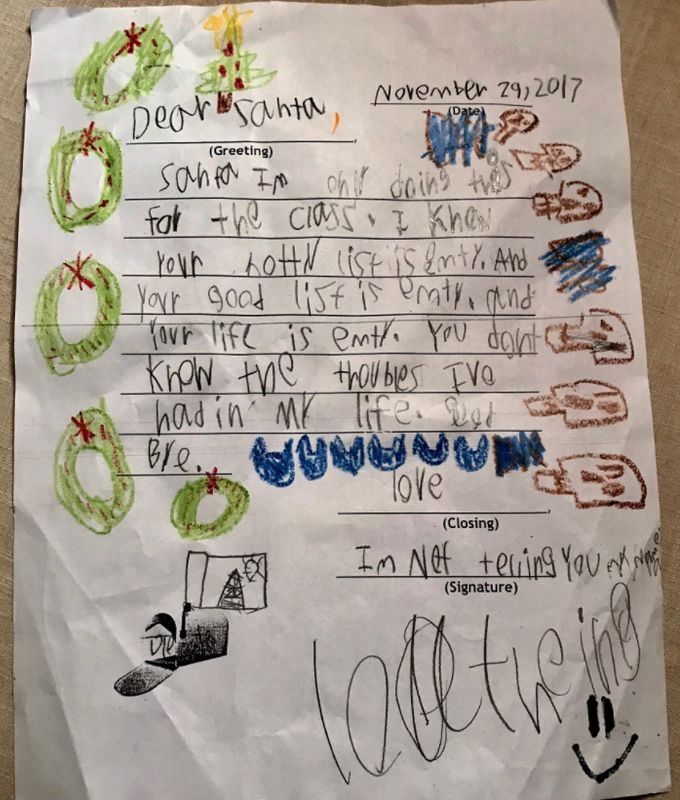 November 29, 2017
(Date)
Dear Santa,
(Greeting)
Santa Im only doing this
for the class. I Know
Your notty list is emty. And
Your good list is emty. and
Your life is emty. You dont
Know the thoubles Ive
had in my life. Bad
Bye.
love
(Closing)
Im Not telling you my name
(Signature)